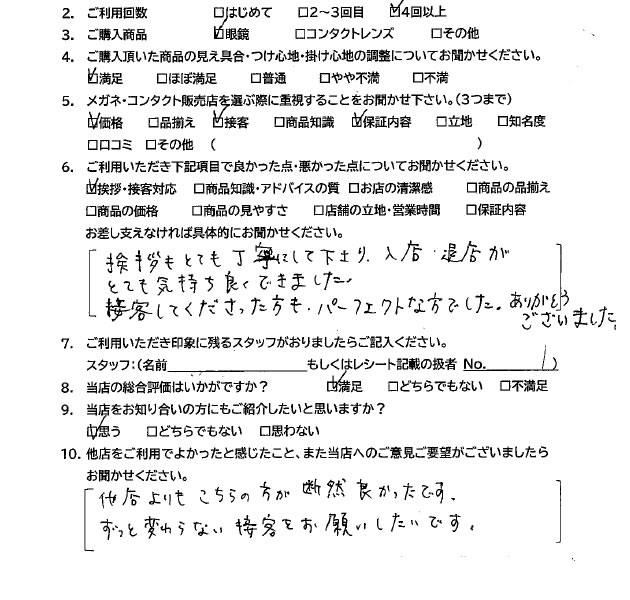 2. ご利用回数 □はじめて □2～3回目 ☑4回以上
3. ご購入商品 ☑眼鏡 □コンタクトレンズ □その他
4. ご購入頂いた商品の見え具合・つけ心地・掛け心地の調整についてお聞かせください。
☑満足 □ほぼ満足 □普通 □やや不満 □不満
5. メガネ・コンタクト販売店を選ぶ際に重視することをお聞かせ下さい。(3つまで)
☑価格 □品揃え ☑接客 □商品知識 ☑保証内容 □立地 □知名度
□口コミ □その他 ( )
6. ご利用いただき下記項目で良かった点・悪かった点についてお聞かせください。
☑挨拶・接客対応 □商品知識・アドバイスの質 □お店の清潔感 □商品の品揃え
□商品の価格 □商品の見やすさ □店舗の立地・営業時間 □保証内容
お差し支えなければ具体的にお聞かせください。
挨拶もとても丁寧にして下さり、入店・退店が
とても気持ち良くできました。
接客してくださった方も、パーフェクトな方でした。ありがとう
ございました。
7. ご利用いただき印象に残るスタッフがおりましたらご記入ください。
スタッフ:(名前 もしくはレシート記載の扱者 No. 1)
8. 当店の総合評価はいかがですか? ☑満足 □どちらでもない □不満足
9. 当店をお知り合いの方にもご紹介したいと思いますか?
☑思う □どちらでもない □思わない
10. 他店をご利用でよかったと感じたこと、また当店へのご意見ご要望がございましたら
お聞かせください。
他店よりもこちらの方が断然良かったです。
ずっと変わらない接客をお願いしたいです。